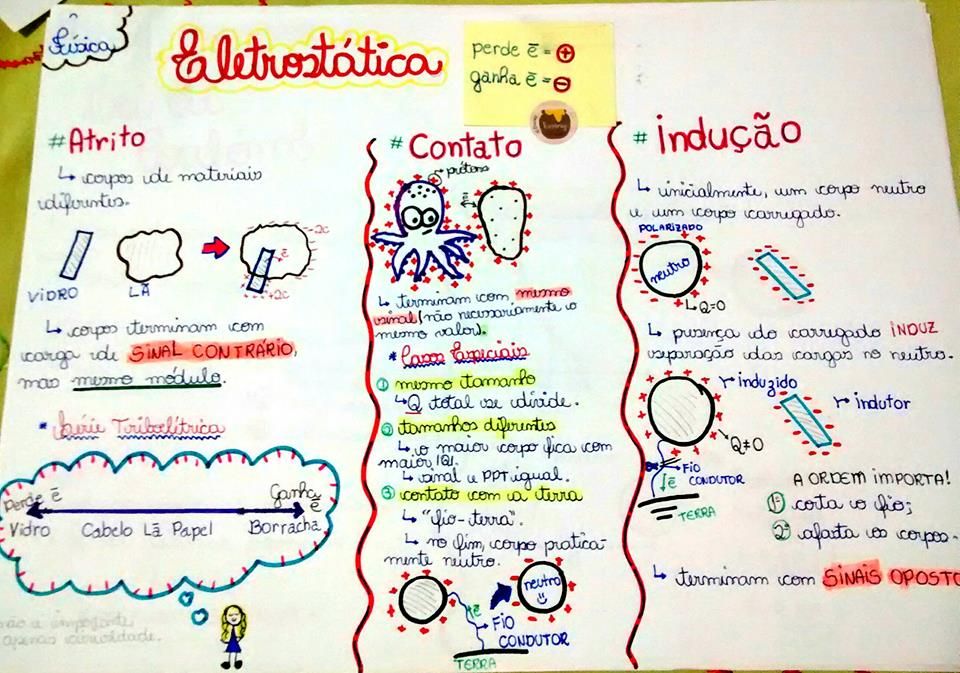 Física
Eletrostática
perde ē = ⊕
ganha ē = ⊖
# Atrito
↳ corpos de materiais
diferentes.
VIDRO
LÃ
ē
-2C
+2C
↳ corpos terminam com
carga de SINAL CONTRÁRIO,
mas mesmo módulo.
* Série Triboelétrica
Perde ē
Ganha ē
Vidro Cabelo Lã Papel Borracha
não é importante,
apenas curiosidade.
# Contato
prótons
ē
↳ terminam com mesmo
sinal (não necessariamente o
mesmo valor).
* Casos Especiais
① mesmo tamanho
↳ Q total se divide.
② tamanhos diferentes
↳ o maior corpo fica com
maior |Q|.
↳ sinal e PPT igual.
③ contato com a terra
↳ "fio-terra".
↳ no fim, corpo pratica-
mente neutro.
ē
FIO
CONDUTOR
neutro
TERRA
# indução
↳ inicialmente, um corpo neutro
e um corpo carregado.
POLARIZADO
neutro
↳ Q=0
↳ presença do carregado INDUZ
separação das cargas no neutro.
induzido
indutor
Q≠0
FIO
CONDUTOR
ē
TERRA
A ORDEM IMPORTA!
1º corta o fio;
2º afasta os corpos.
↳ terminam com SINAIS OPOSTO